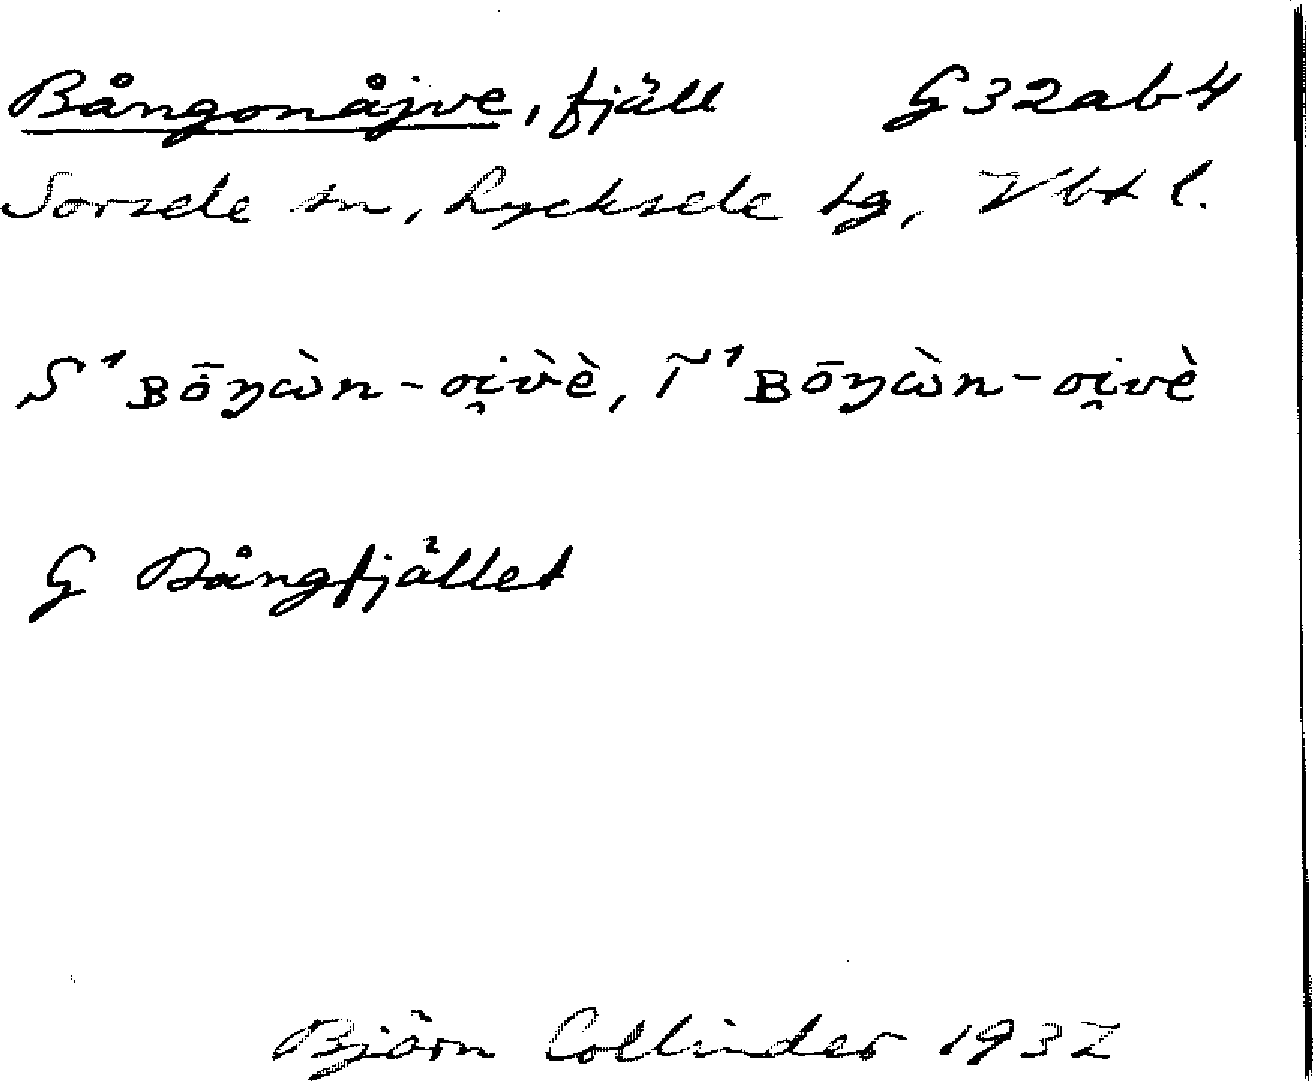 Bångonåjve, fjäll G32ab4
Sorsele sn, Lycksele tg, Vbt l.
S¹ ʙōŋὼn-oi̭v̀è, T¹ ʙōŋὼn-oi̭vè
G Bångfjället
Björn Collinder 1937